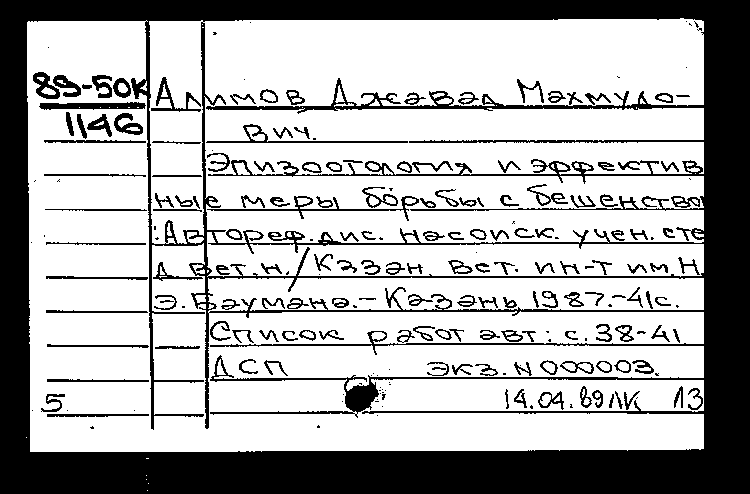 89-50К Алимов Джавад Махмудо-
1146 вич.
Эпизоотология и эффектив
ные меры борьбы с бешенство
:Автореф.дис. на соиск. учен. сте
д вет.н./Казан. вет. ин-т им.Н.
Э.Баумана.-Казань, 1987.-41с.
Список работ авт: с.38-41
ДСП экз.N 000003.
5 14.04.89 ЛК 13